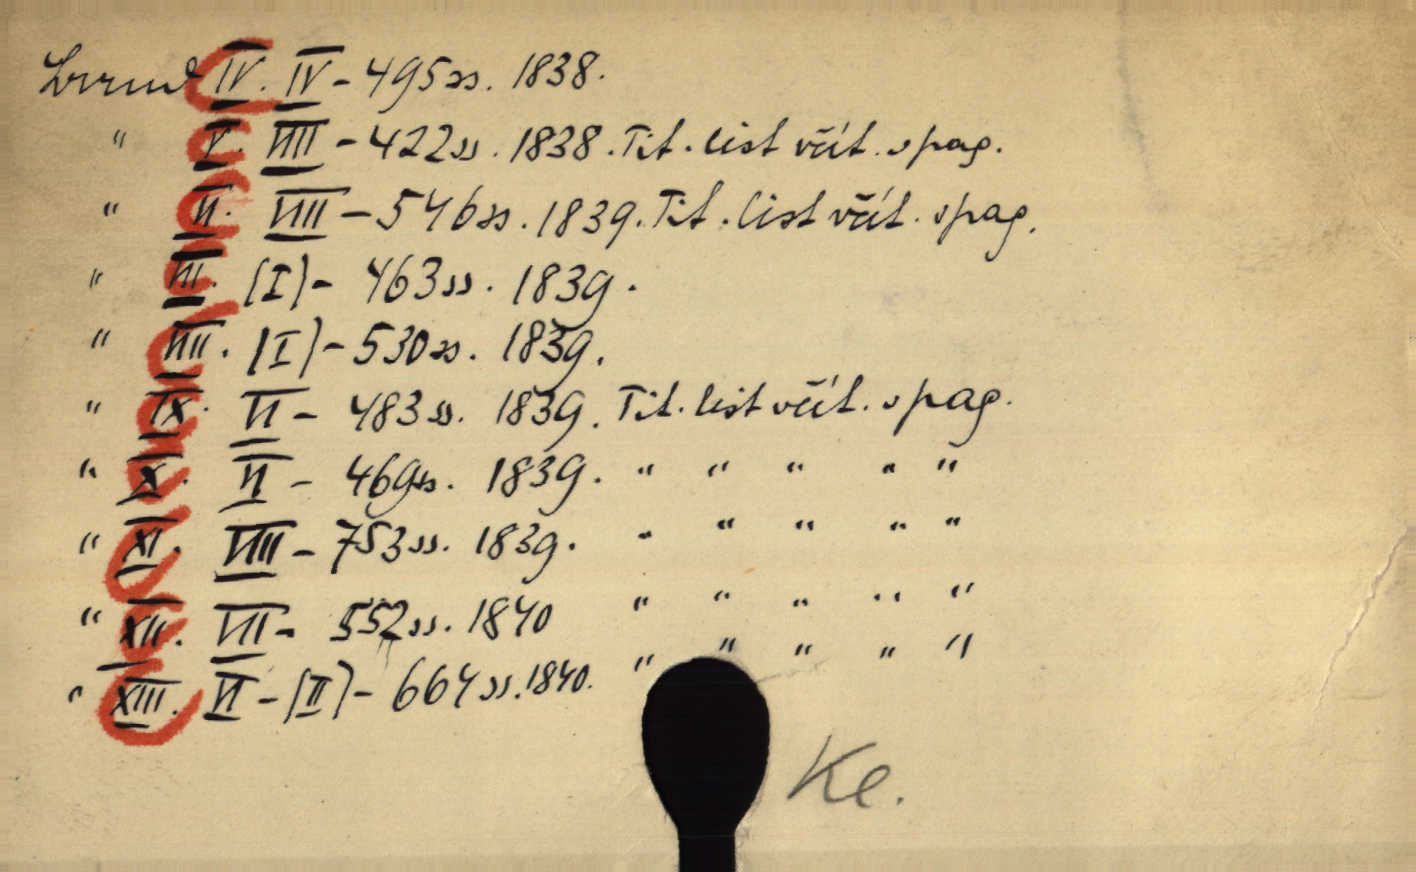 IV. IV - 495 ss. 1838.
" V. VIII - 422 ss. 1838. Tit. list včít. s pag.
" VI. VIII - 546 ss. 1839. Tit. list včít. s pag.
" VII. [I] - 463 ss. 1839.
" VIII. [I] - 530 ss. 1839.
" IX. VI - 483 ss. 1839. Tit. list včít. s pag.
" X. VI - 469 ss. 1839. " " " " "
" XI. VIII - 753 ss. 1839. " " " " "
" XII. VII - 552 ss. 1840 " " " " "
" XIII. VI - [II] - 664 ss. 1840. " " " " "
Ke.